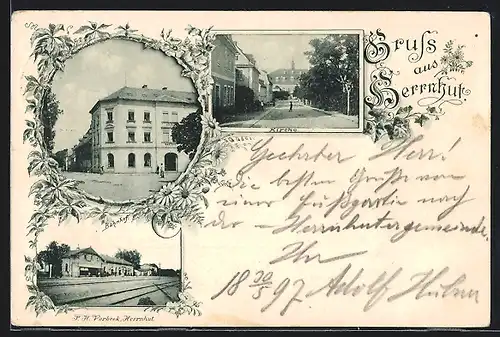 Gruß
aus
Herrnhut.
Kirche
Bahnhof
Geehrter Herr!
Die besten Grüße von
einer Fußpartie nach
der Herrnhutergemeinde.
Ihr
18 30/5 97. Adolf
Herrnhut.